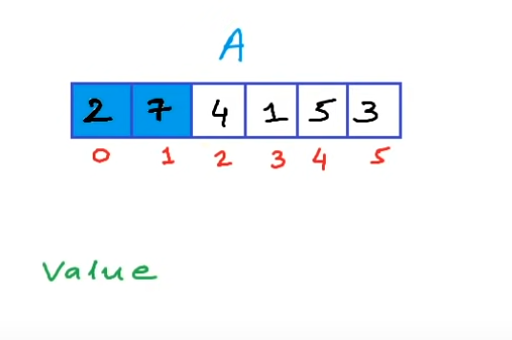 A
2 7 4 1 5 3
0 1 2 3 4 5
Value